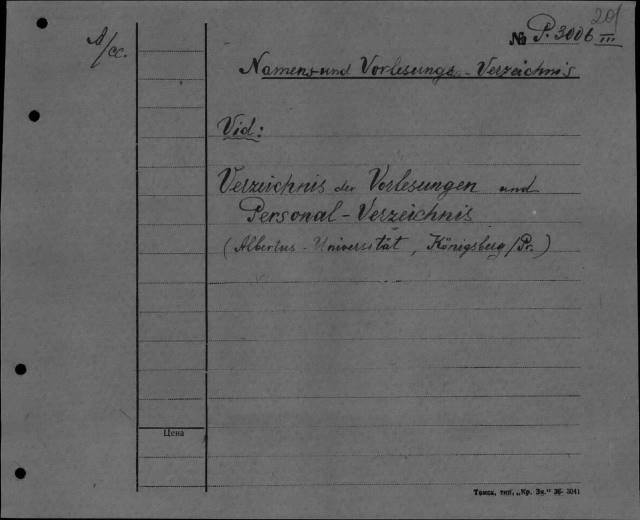 A/cc.
№ P. 3006 III
201
Namens- und Vorlesungs-Verzeichnis
Vid:
Verzeichnis der Vorlesungen und
Personal-Verzeichnis
(Albertus-Universität, Königsberg/Pr.)
Цена
Томск, тип. „Кр. Зн." 36- 3041